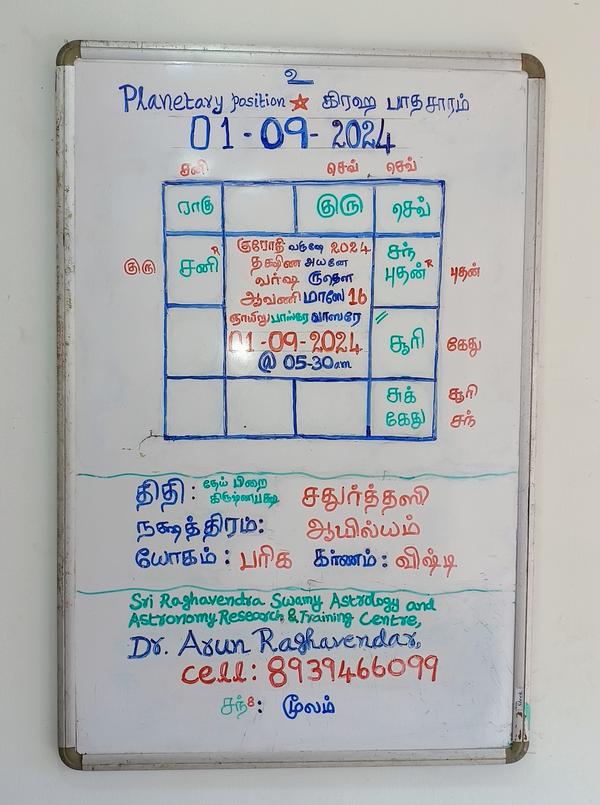 உ
Planetary position ★ கிரஹ பாதசாரம்
01-09-2024
சனி செவ் செவ்
ராகு குரு செவ்
குரு சனி R குரோதி வருஷே 2024 சந்
தக்ஷிண அயனே புதன் R புதன்
வர்ஷ ருதௌ
ஆவணி மாஸே 16
ஞாயிறு பாஸ்கர வாஸரே
01-09-2024 சூரி கேது
@ 05-30am
சுக் சூரி
கேது சந்
திதி: தேய் பிறை சதுர்த்தஸி
கிருஷ்ணபக்ஷ
நக்ஷத்திரம்: ஆயில்யம்
யோகம்: பரிக கர்ணம்: விஷ்டி
Sri Raghavendra Swamy Astrology and
Astronomy Research & Training Centre,
Dr. Arun Raghavendar,
cell: 8939466099
சந் 8: மூலம்